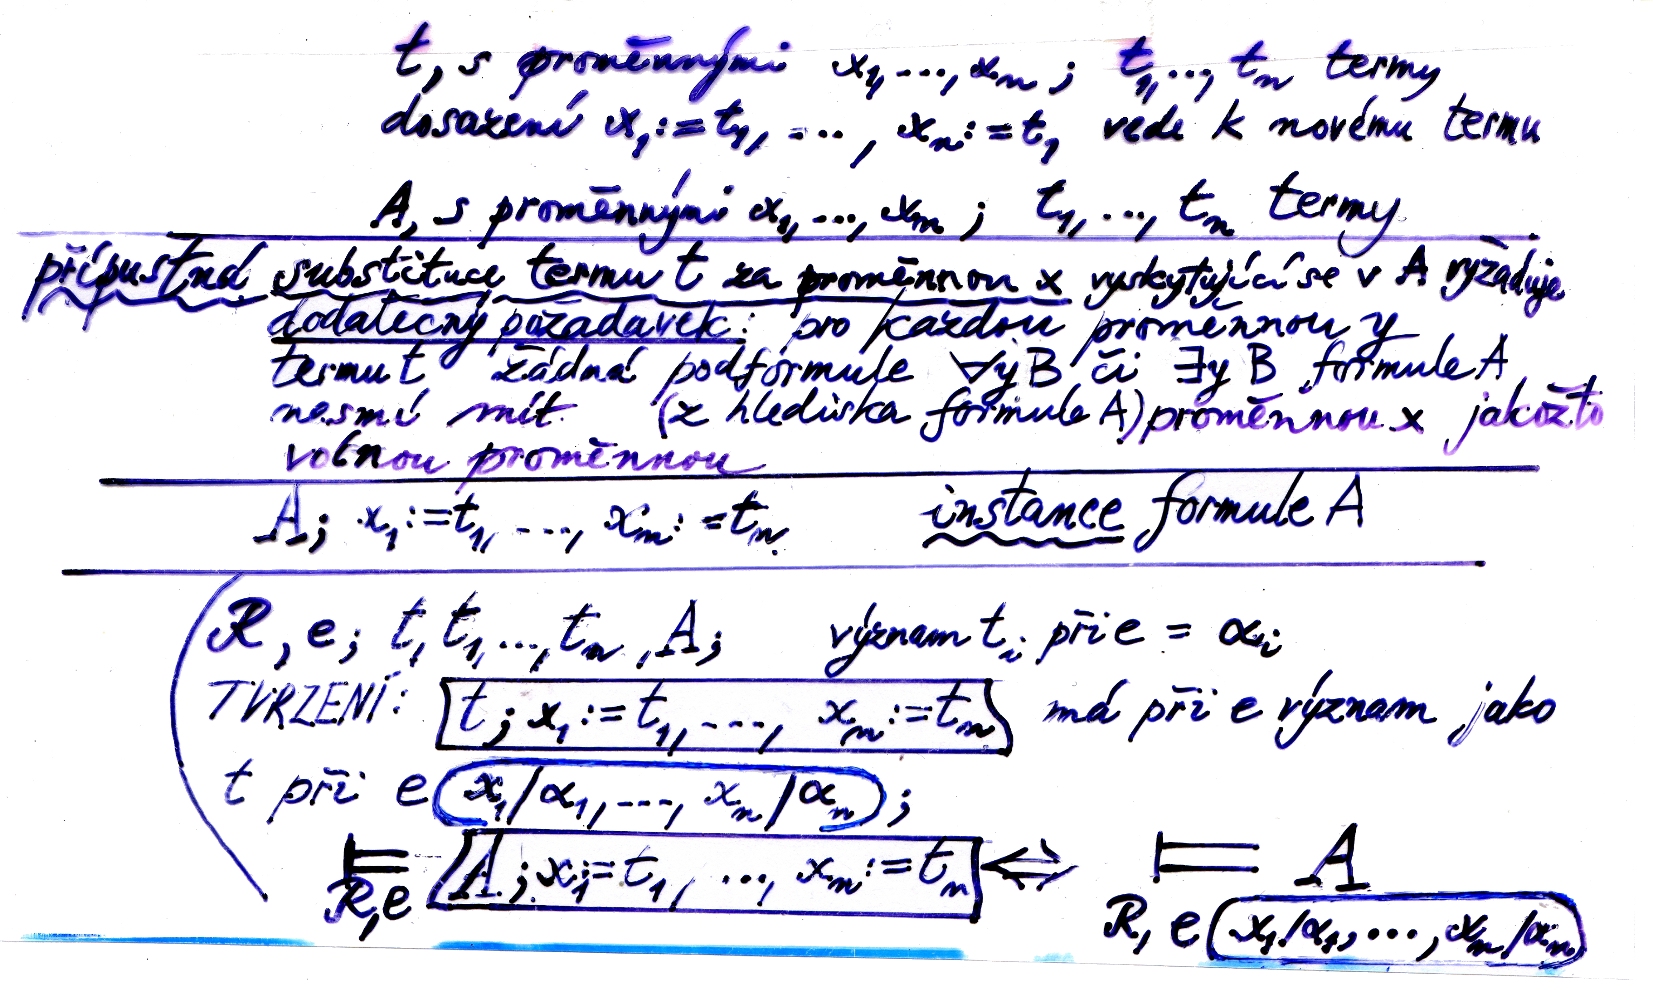 t, s proměnnými x₁, ..., xₙ ; t₁, ..., tₙ termy
dosazení x₁:=t₁, ..., xₙ:=t₁ vede k novému termu
A, s proměnnými x₁, ..., xₙ ; t₁, ..., tₙ termy
přípustná substituce termu t za proměnnou x vyskytující se v A vyžaduje
dodatečný požadavek: pro každou proměnnou y
termu t žádná podformule ∀y B či ∃y B formule A
nesmí mít (z hlediska formule A) proměnnou x jakožto
volnou proměnnou
A; x₁:=t₁, ..., xₙ:=tₙ instance formule A
R, e; t, t₁, ..., tₙ, A; význam tᵢ při e = αᵢ
TVRZENÍ: t; x₁:=t₁, ..., xₙ:=tₙ má při e význam jako
t při e x₁/α₁, ..., xₙ/αₙ ;
⊨ A; x₁:=t₁, ..., xₙ:=tₙ ⇔ ⊨ A
R, e R, e x₁/α₁, ..., xₙ/αₙ